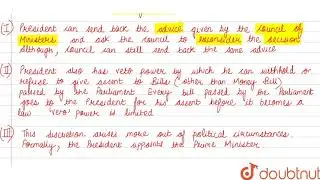 (I) President can send back the advice given by the council of
Ministers and ask the council to reconsider the decision
although, council can still send back the same advice.
(II) President also has veto power by which he can withhold or
refuse to give assent to Bills (other than Money Bill)
passed by the Parliament Every bill passed by the Parliament
goes to the President for his assent before it becomes a
law "Veto" power is limited
(III) This discretion arises more out of political circumstances.
Formally, the President appoints the Prime Minister
doubtnut